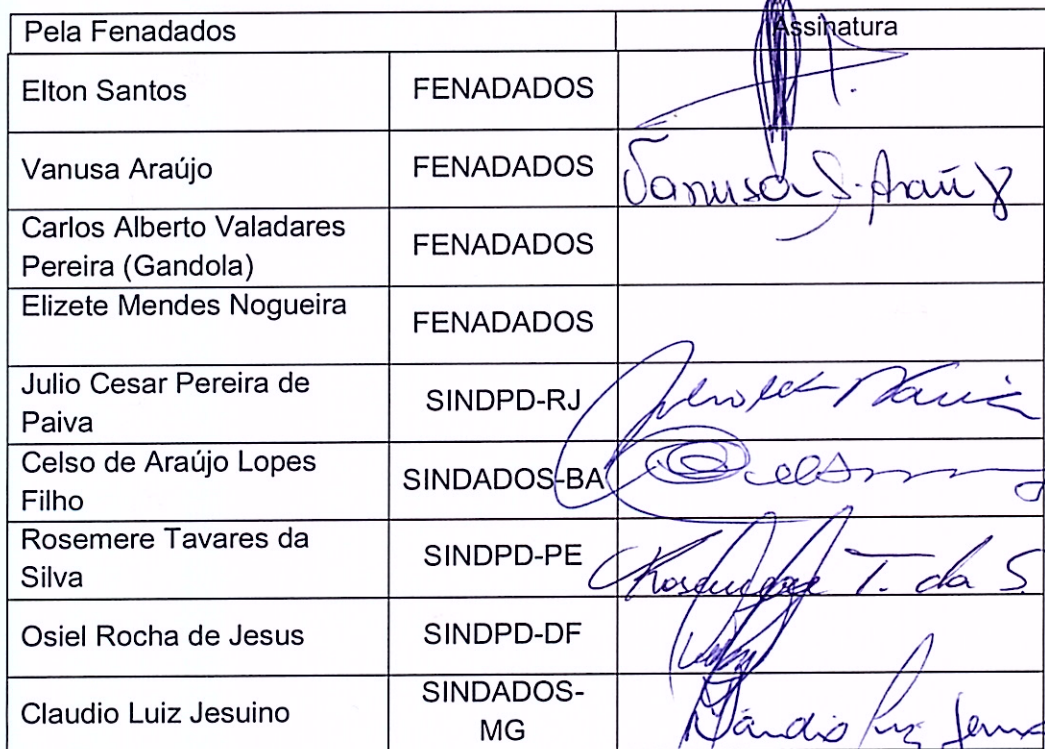 Pela Fenadados Assinatura
Elton Santos FENADADOS
Vanusa Araújo FENADADOS Vanusa S. Araújo
Carlos Alberto Valadares
Pereira (Gandola) FENADADOS
Elizete Mendes Nogueira FENADADOS
Julio Cesar Pereira de
Paiva SINDPD-RJ
Celso de Araújo Lopes
Filho SINDADOS-BA Celso
Rosemere Tavares da
Silva SINDPD-PE T. da S.
Osiel Rocha de Jesus SINDPD-DF
Claudio Luiz Jesuino SINDADOS-
MG Claudio Luiz